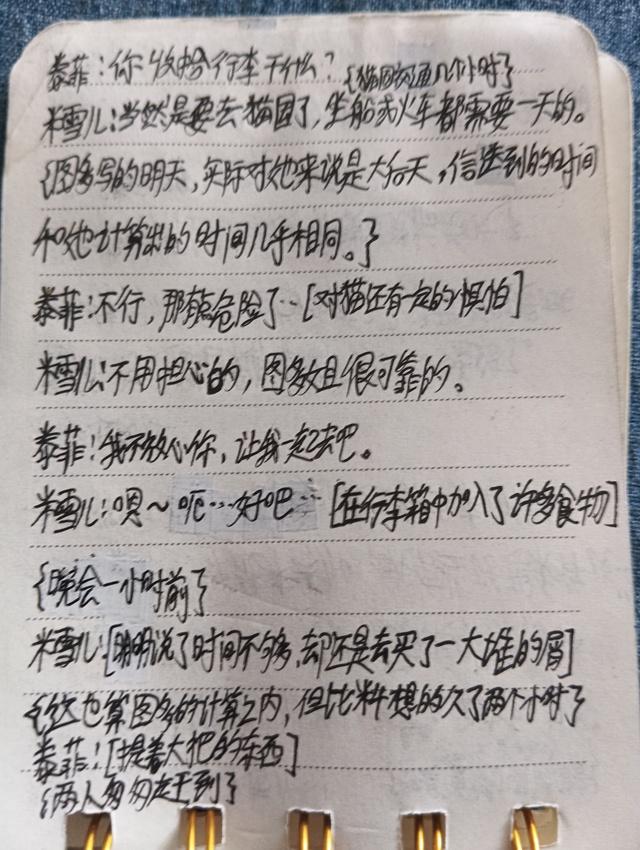 泰菲:你收拾行李干什么?{猫国交通几个小时}
米雪儿:当然是要去猫国了,坐船或火车都需要一天的。
{图多写的明天,实际对她来说是大后天,信送到的时间
和她计算出的时间几乎相同。}
泰菲:不行,那太危险了…[对猫还有一定的惧怕]
米雪儿:不用担心的,图多女且很可靠的。
泰菲:我不放心你,让我一起去吧。
米雪儿:嗯~呃…好吧…[在行李箱中加入了许多食物]
{晚会一小时前}
米雪儿:[明明说了时间不够,却还是去买了一大堆的屑]
{这也算图多的计算之内,但比料想的久了两个小时}
泰菲:[提着大把的东西]
{两人匆匆赶到}